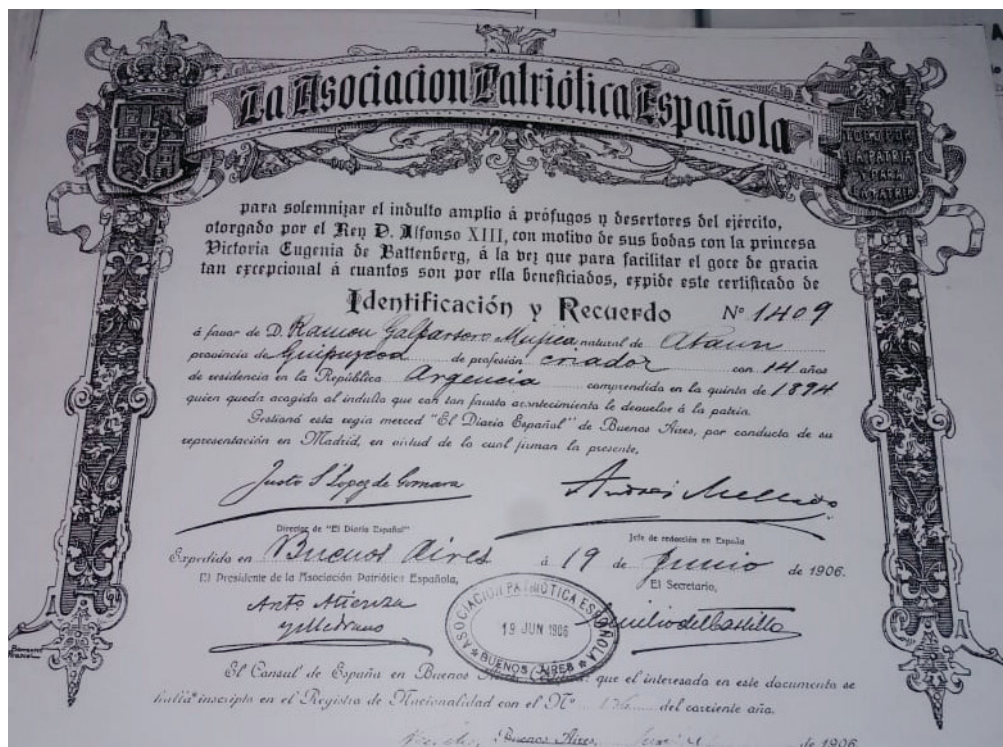 La Asociacion Patriótica Española
TODO POR
LA PATRIA
Y PARA
LA PATRIA
para solemnizar el indulto amplio á prófugos y desertores del ejército,
otorgado por el Rey D. Alfonso XIII, con motivo de sus bodas con la princesa
Victoria Eugenia de Battenberg, á la vez que para facilitar el goce de gracia
tan excepcional á cuantos son por ella beneficiados, expide este certificado de
Identificación y Recuerdo Nº 1409
á favor de D. Ramon Galparsoro Mujica natural de Ataun
provincia de Guipuzcoa de profesión criador con 14 años
de residencia en la República Argencia comprendido en la quinta de 1894
quien queda acogido al indulto que con tan fausto acontecimiento le devuelve á la patria.
Gestionó esta regia merced "El Diario Español" de Buenos Aires, por conducto de su
representación en Madrid, en virtud de la cual firman la presente,
Justo S López de Gomara
Director de "El Diario Español"
Jefe de redacción en España
Expedido en Buenos Aires á 19 de Junio de 1906.
El Presidente de la Asociación Patriótica Española,
El Secretario,
Anto Atienza
y Medrano
ASOCIACION PATRIÓTICA ESPAÑOLA
19 JUN 1906
BUENOS AIRES
Emilio del Castillo
El Consul de España en Buenos que el interesado en este documento se
halla inscripto en el Registro de Nacionalidad con el Nº del corriente año.
Buenos Aires, de 1906